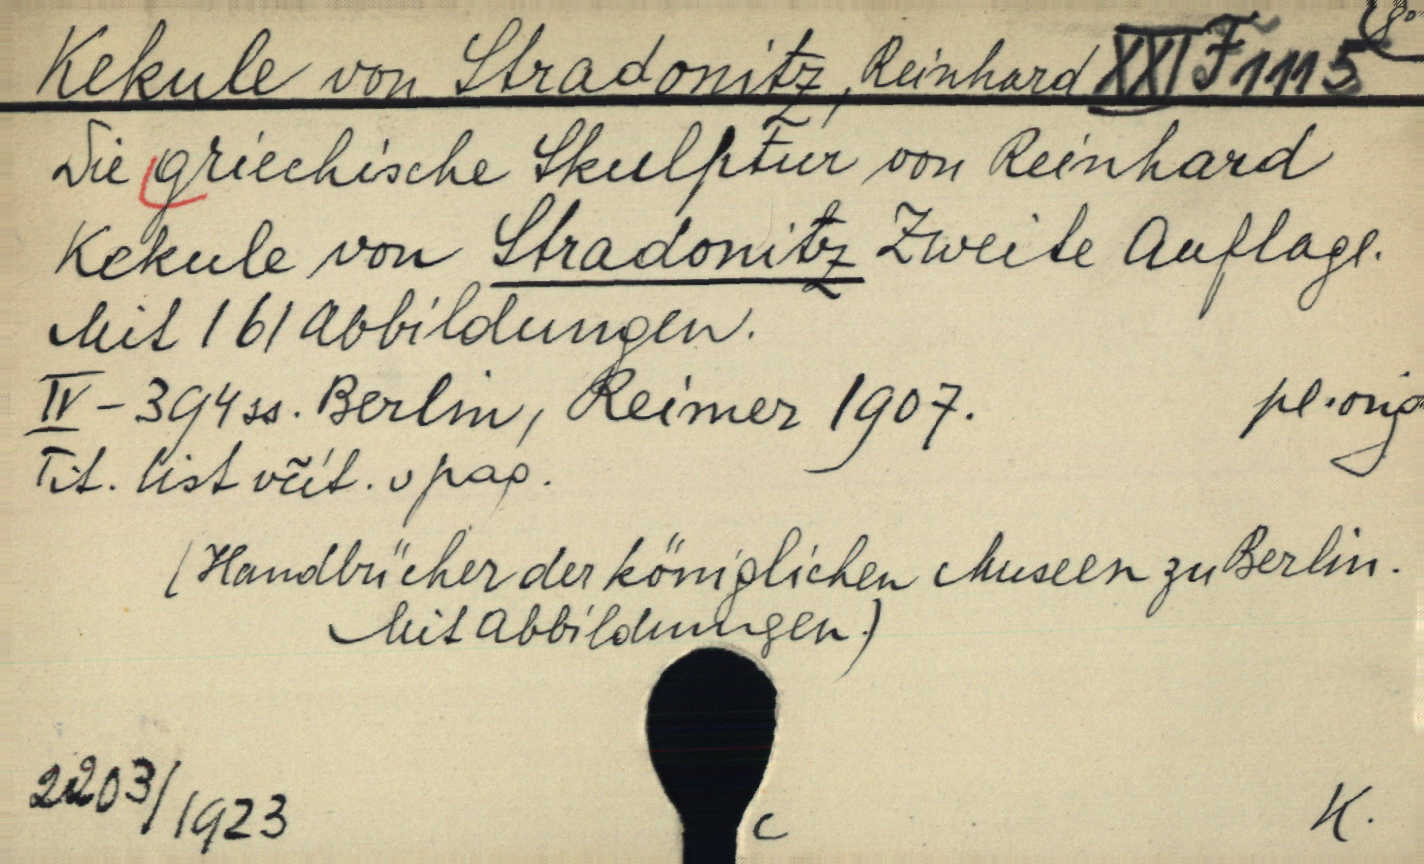 Kekule von Stradonitz, Reinhard XXI F 1115
8°
Die griechische Skulptur von Reinhard
Kekule von Stradonitz Zweite Auflage.
Mit 161 Abbildungen.
IV - 394 ss. Berlin, Reimer 1907. pl. orig
Tit. list včít. v pag.
(Handbücher der königlichen Museen zu Berlin.
Mit Abbildungen.)
2203/1923
c
K.